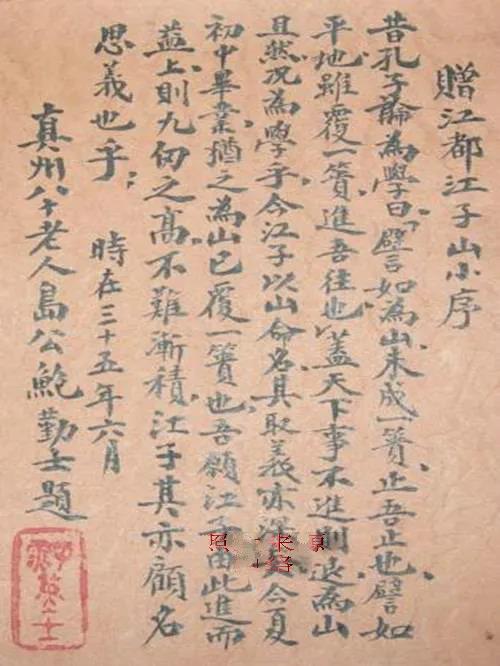 贈江都江子山小序
昔孔子論為學曰、譬如為山、未成一簣、止吾止也、譬如
平地雖覆一簣、進吾往也、蓋天下事不進則退、為山
且然、况為學乎、今江子以山命名、其取義亦深今夏
初中畢業、猶之為山已覆一簣也、吾願江子由此進而
益上、則九仞之高、不難漸積、江子其亦顧名
思義也乎、
時在三十五年六月
真州八十老人島公鮑勤士題